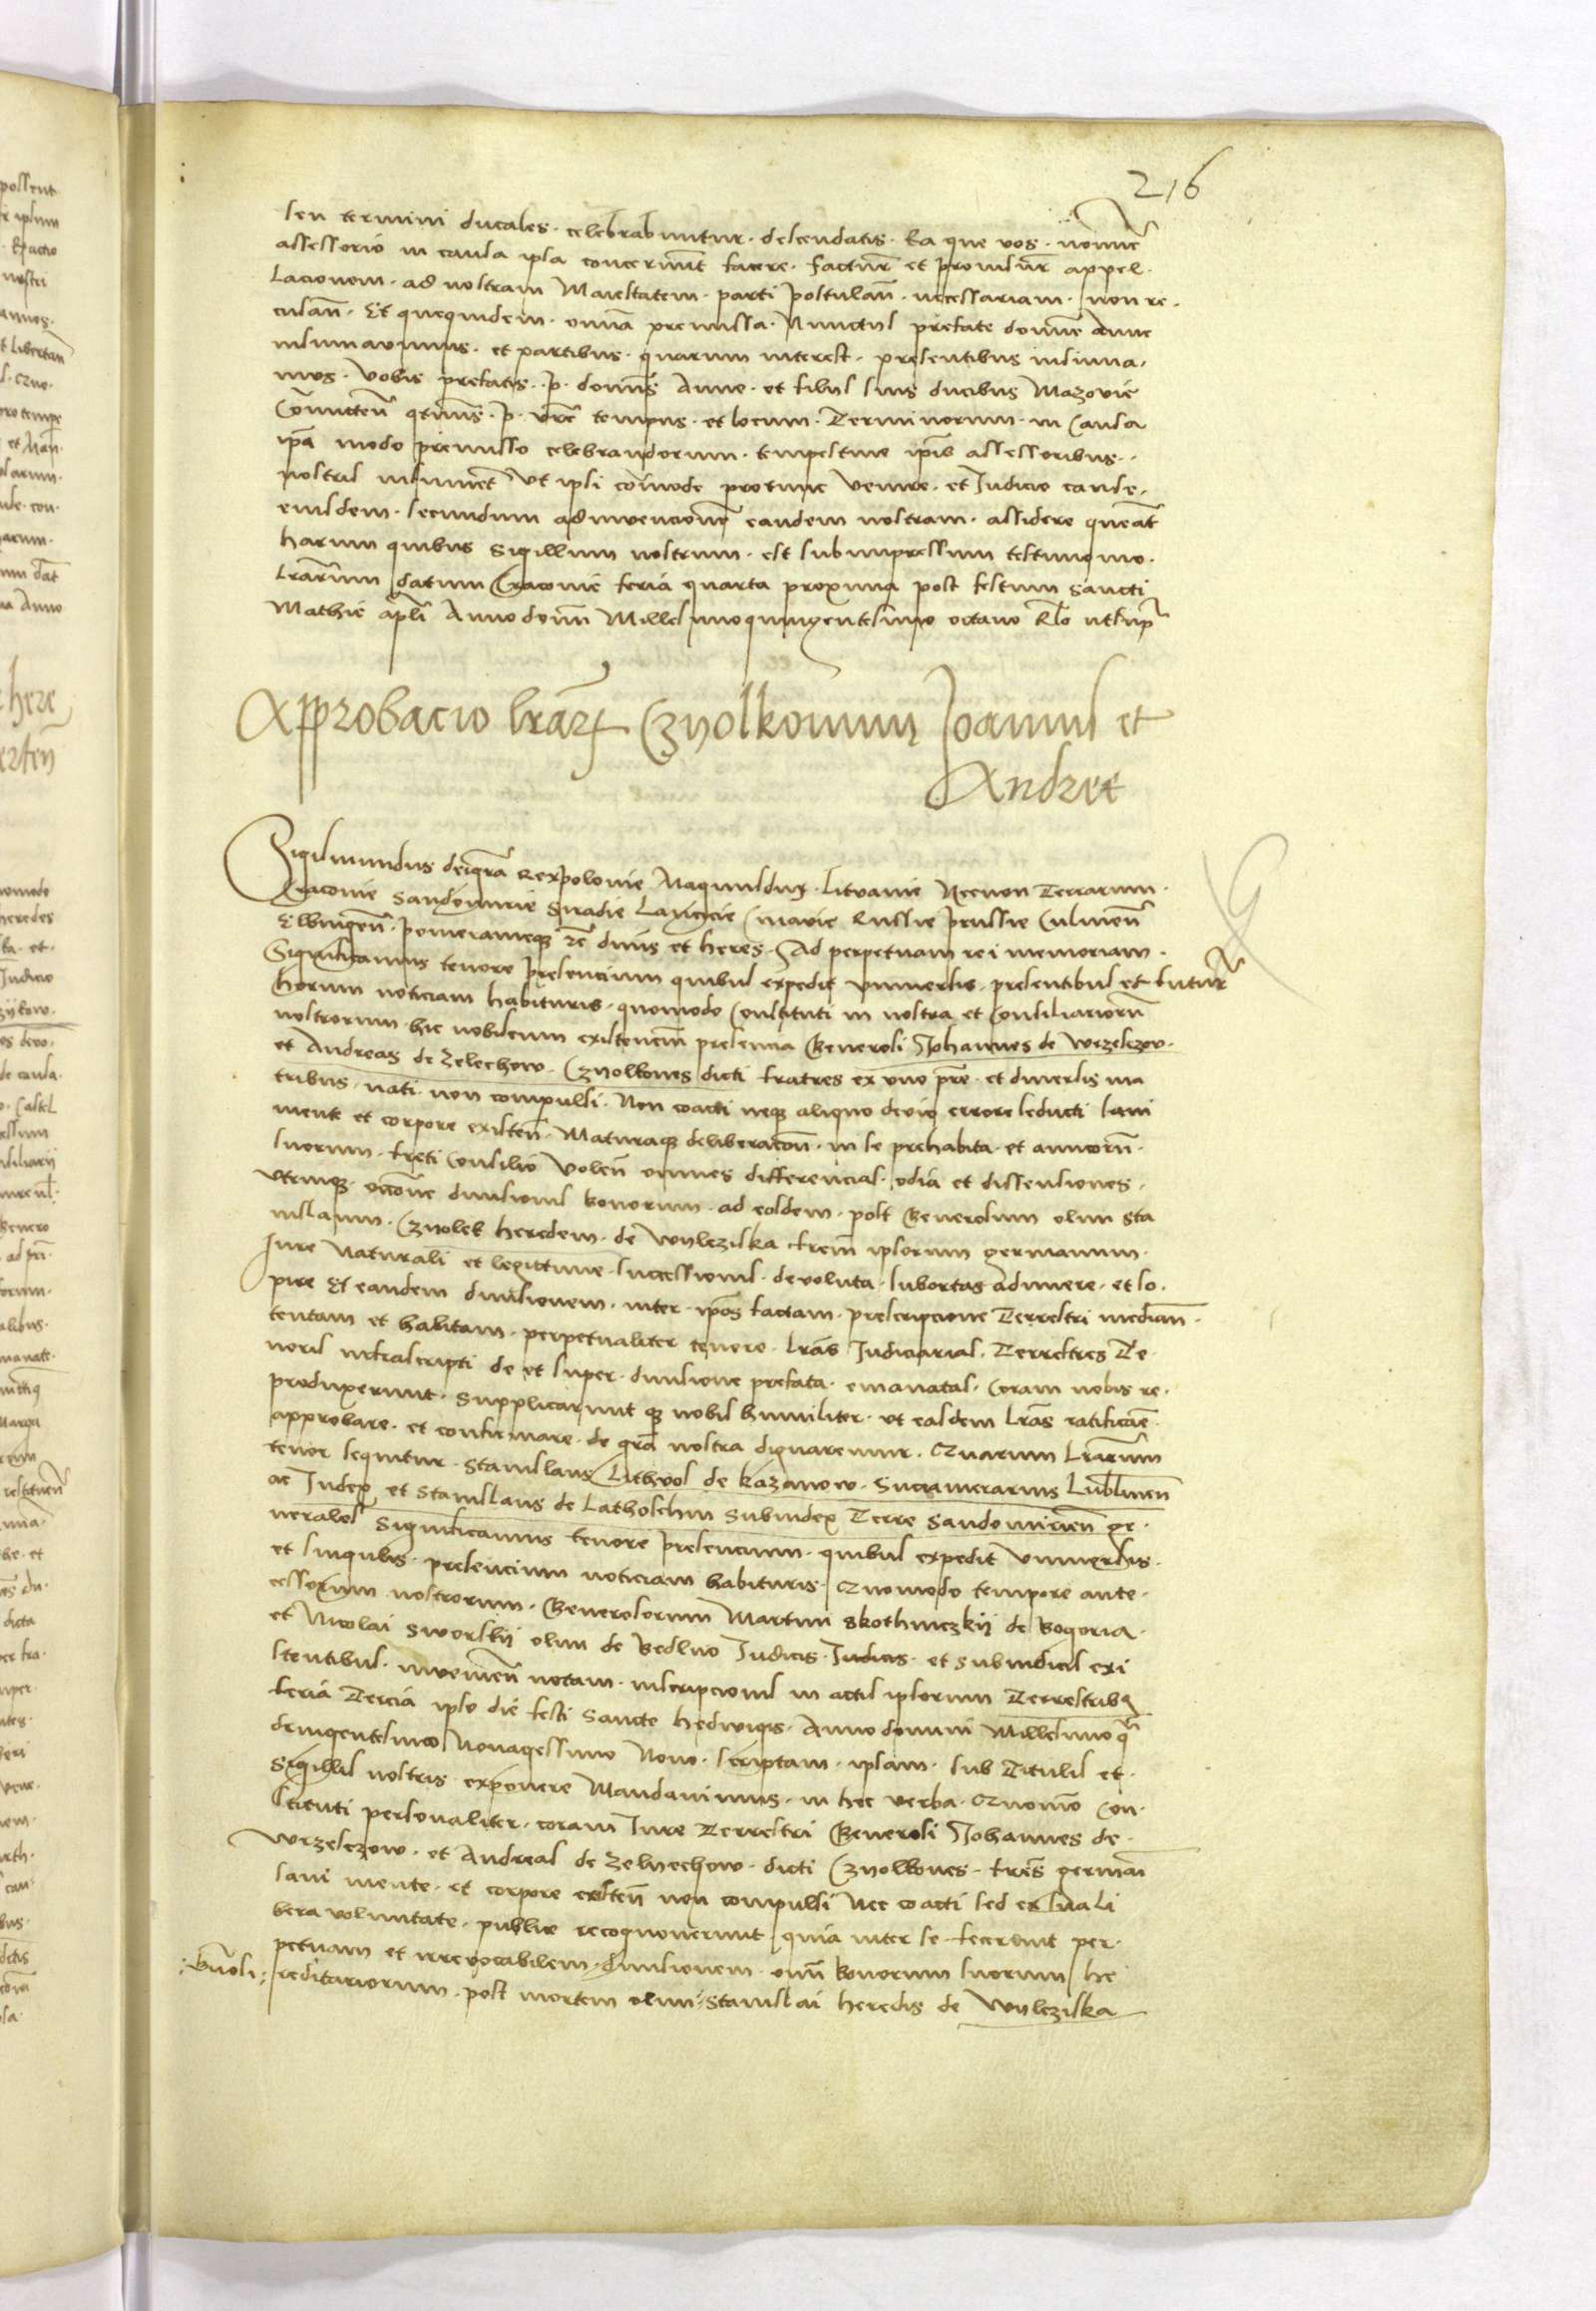 216
seu termini ducales. celebrabuntur. descendatis. Ea que vos. nomine
assessorio in causa ipsa concernunt facere. factur et provisur appel.
lacionem. ad nostram Maiestatem. parti postulan. necessariam. non re.
cusan. Et quequidem. omnia premissa. Nunctys prefate domine Anne
insinuavimus. et partibus. quarum interest. presentibus insinua.
mus. Vobis prefatis. p. domine Anne. et filys suis ducibus Mazovie
Committen qtinus. p. vre tempus. et locum. Terminorum. in Causa
ipa modo premisso celebrandorum. tempestive ipis assessoribus.
nostris insinuet Ut ipsi comode protunc venire. et Judicio cause.
eiusdem. secundum adinvencionem eandem nostram. assidere queant
harum quibus Sigillum nostrum. est subimpressum testimonio.
lrarum datum Cracovie feria quarta proxima post festum sancti
Mathie apli Anno domi Millesimoquingentesimo octavo Rlo utsupr
Approbacio lrar Czyolkonum Joannis et
Andree
Sigismundus deigra Rexpolonie Magnusdux. Litvanie Necnon Terrarum.
Cracovie Sandomirie Siradie Lancicie Cuiavie Russie prussie Culmen
Elbingen. pomeranieq. etc dnus et heres. Ad perpetuam rei memoriam.
Significamus tenore presencium quibus expedit universis. presentibus et futur
horum noticiam habituris. quomodo Constituti in nostra et Consiliariorum
nostrorum. hic nobiscum existencium presencia Generosi Johannes de Wrzeszow.
et Andreas de Zelechow. Czyolkones dicti fratres ex uno pre. et diversis ma
tribus. nati. non compulsi. Non coacti neq. aliquo devio errore seducti sani
mente et corpore existen. Maturaq. deliberacion. in se prehabita. et amicorum.
suorum. freti Consilio Volen omnes differencias. odia et dissensiones.
utrinq. occasione divisionis bonorum. ad eosdem. post Generosum olim Sta
nislaum. Czyolek heredem. de Wylcziska frem ipsorum germanum.
Jure Naturali et legittime. successionis. devoluta. subortas adimere. et so.
pire Et eandem divisionem. inter. ipos factam. prescripcione Terrestri median.
tentam et habitam. perpetualiter tenere. lras Judiciarias. Terrestres Te.
noris infrascripti de et super. divisione prefata. emanatas. Coram nobis re.
produxerunt. Supplicarunt q. nobis humiliter. ut easdem lras ratificare.
approbare. et confirmare. de gra nostra dignaremur. Quarum Lrarum
tenor sequitur. Stanislaus Lithwos de Kazanow. Succamerarius Lublinen
ac Judex et Stanislaus de Lathoschin Subiudex Terre Sandomirien ge.
nerales Significamus tenore presencium. quibus expedit Universis.
et singulis. presencium noticiam habituris. Quomodo tempore ante.
cessorum nostrorum. Generosorum Martini Skothniczkij de Bogoria.
et Nicolai Sworskij olim de Bedlno Judicis. Judicis. et Subiudicis exi
stentibus. invenien notam. inscripcionis in actis ipsorum Terrestribus
feria Tercia ipso die festi Sancte hedwigis. Anno domini Millesimoqua
dringentesimo Nonagessimo Nono. scriptam. ipsam. sub Titulis et.
Sigillis nostris exponere Mandavimus. in hec verba. Quomodo Con.
stituti personaliter. coram Jure Terrestri Generosi Johannes de.
Wrzeszow. et Andreas de Zelyechow. dicti Czyolkones. fres germani
sani mente. et corpore existen non compulsi Nec coacti sed ex sua li
bera voluntate. publice recognoverunt quia inter se. fecerunt per.
petuam et irrevocabilem. divisionem. omnium bonorum suorum he
:Gnosi: reditariorum. post mortem olim Stanislai heredis de Wylcziska